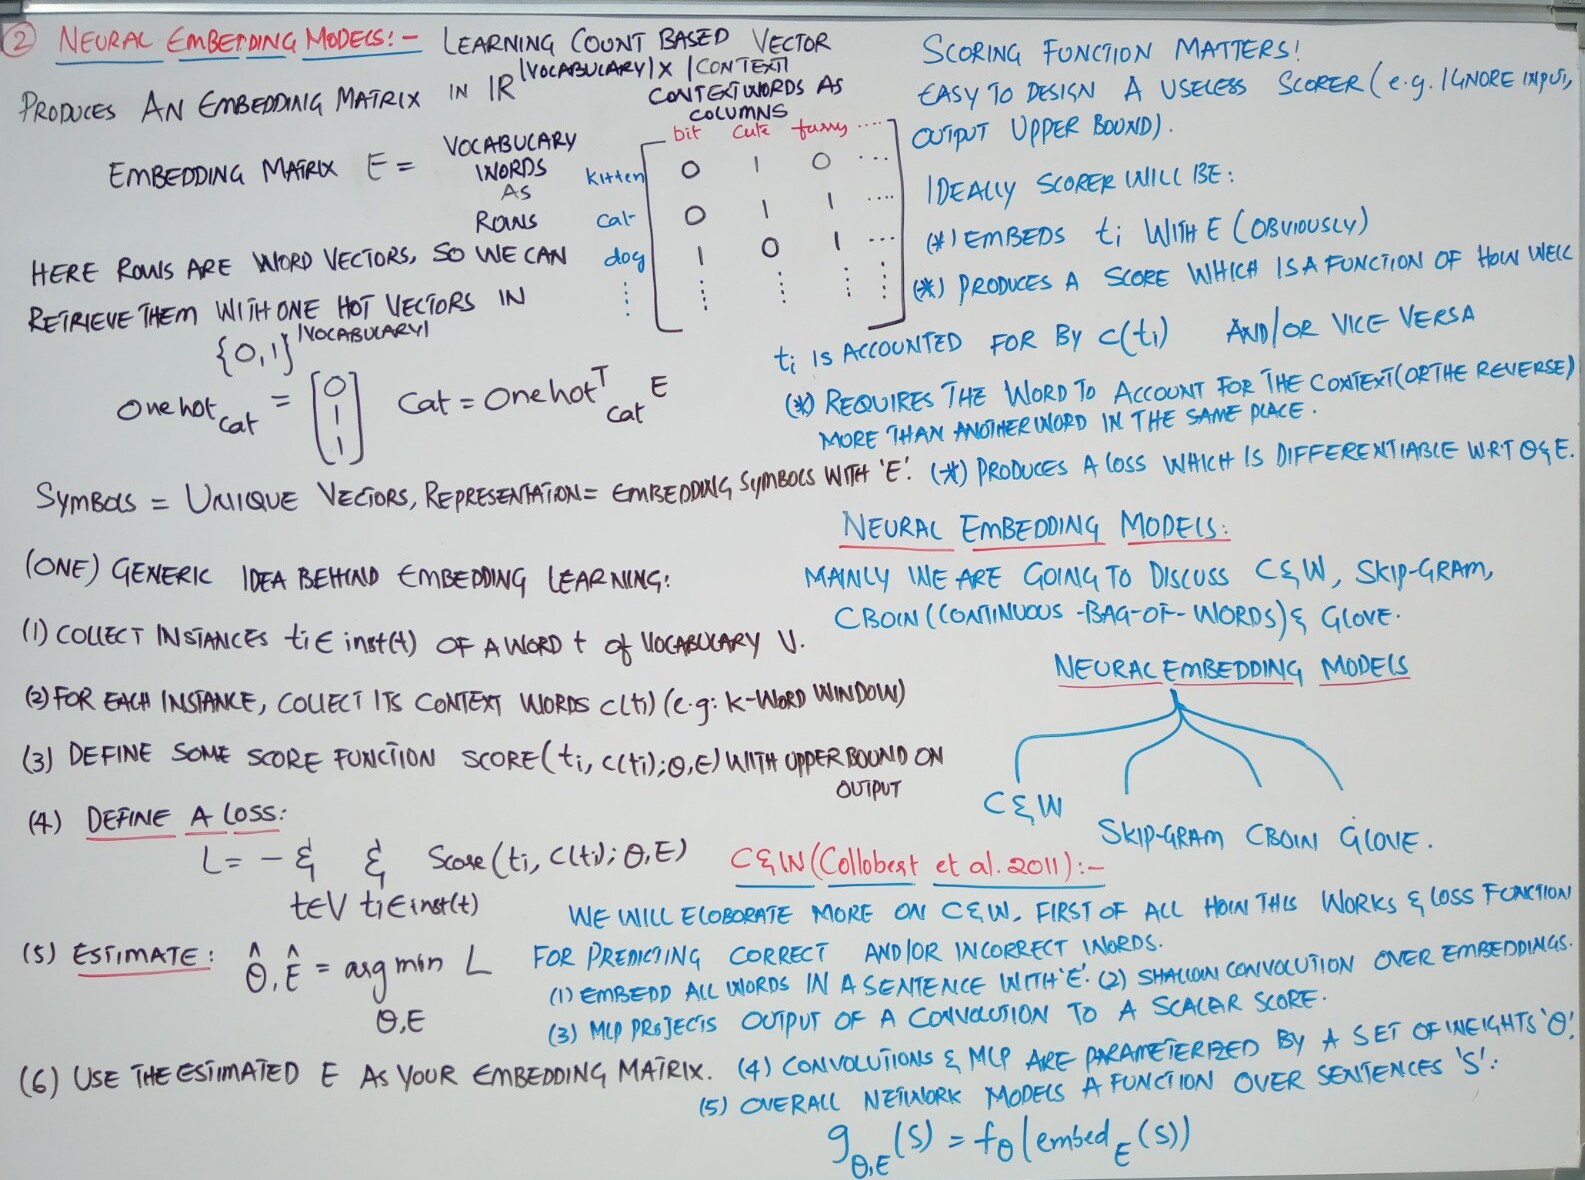 ② NEURAL EMBEDDING MODELS:- LEARNING COUNT BASED VECTOR
PRODUCES AN EMBEDDING MATRIX IN IR |VOCABULARY| X |CONTEXT|
CONTEXT WORDS AS
COLUMNS
EMBEDDING MATRIX E =
VOCABULARY
WORDS
AS
ROWS
bit cute furry ....
kitten 0 1 0 ...
cat 0 1 1 ....
dog 1 0 1 ...
HERE ROWS ARE WORD VECTORS, SO WE CAN
RETRIEVE THEM WITH ONE HOT VECTORS IN
{0,1}|VOCABULARY|
Onehot cat = [0 1 1] Cat = Onehot T cat E
SYMBOLS = UNIQUE VECTORS, REPRESENTATION = EMBEDDING SYMBOLS WITH 'E'.
(ONE) GENERIC IDEA BEHIND EMBEDDING LEARNING:
(1) COLLECT INSTANCES ti ∈ inst(t) OF A WORD t of VOCABULARY V.
(2) FOR EACH INSTANCE, COLLECT ITS CONTEXT WORDS c(ti) (e.g: K-WORD WINDOW)
(3) DEFINE SOME SCORE FUNCTION SCORE(ti, c(ti); θ, E) WITH UPPER BOUND ON
OUTPUT
(4) DEFINE A LOSS:
L = - Σ Σ Score(ti, c(ti); θ, E)
t∈V ti∈inst(t)
(5) ESTIMATE: θ̂, Ê = arg min L
θ,E
(6) USE THE ESTIMATED E AS YOUR EMBEDDING MATRIX.
SCORING FUNCTION MATTERS!
EASY TO DESIGN A USELESS SCORER (e.g. IGNORE INPUT,
OUTPUT UPPER BOUND).
IDEALLY SCORER WILL BE:
(*) EMBEDS ti WITH E (OBVIOUSLY)
(*) PRODUCES A SCORE WHICH IS A FUNCTION OF HOW WELL
ti IS ACCOUNTED FOR BY c(ti) AND/OR VICE VERSA
(*) REQUIRES THE WORD TO ACCOUNT FOR THE CONTEXT (OR THE REVERSE)
MORE THAN ANOTHER WORD IN THE SAME PLACE.
(*) PRODUCES A LOSS WHICH IS DIFFERENTIABLE W.R.T θ & E.
NEURAL EMBEDDING MODELS:
MAINLY WE ARE GOING TO DISCUSS C&W, SKIP-GRAM,
CBOW (CONTINUOUS-BAG-OF-WORDS) & GLOVE.
NEURAL EMBEDDING MODELS
C&W
SKIP-GRAM CBOW GLOVE.
C&W (Collobert et al. 2011):-
WE WILL ELOBORATE MORE ON C&W. FIRST OF ALL HOW THIS WORKS & LOSS FUNCTION
FOR PREDICTING CORRECT AND/OR INCORRECT WORDS.
(1) EMBEDD ALL WORDS IN A SENTENCE WITH 'E'. (2) SHALLOW CONVOLUTION OVER EMBEDDINGS.
(3) MLP PROJECTS OUTPUT OF A CONVOLUTION TO A SCALAR SCORE.
(4) CONVOLUTIONS & MLP ARE PARAMETERIZED BY A SET OF WEIGHTS 'θ'.
(5) OVERALL NETWORK MODELS A FUNCTION OVER SENTENCES 'S':
gθ,E(S) = fθ(embedE(S))